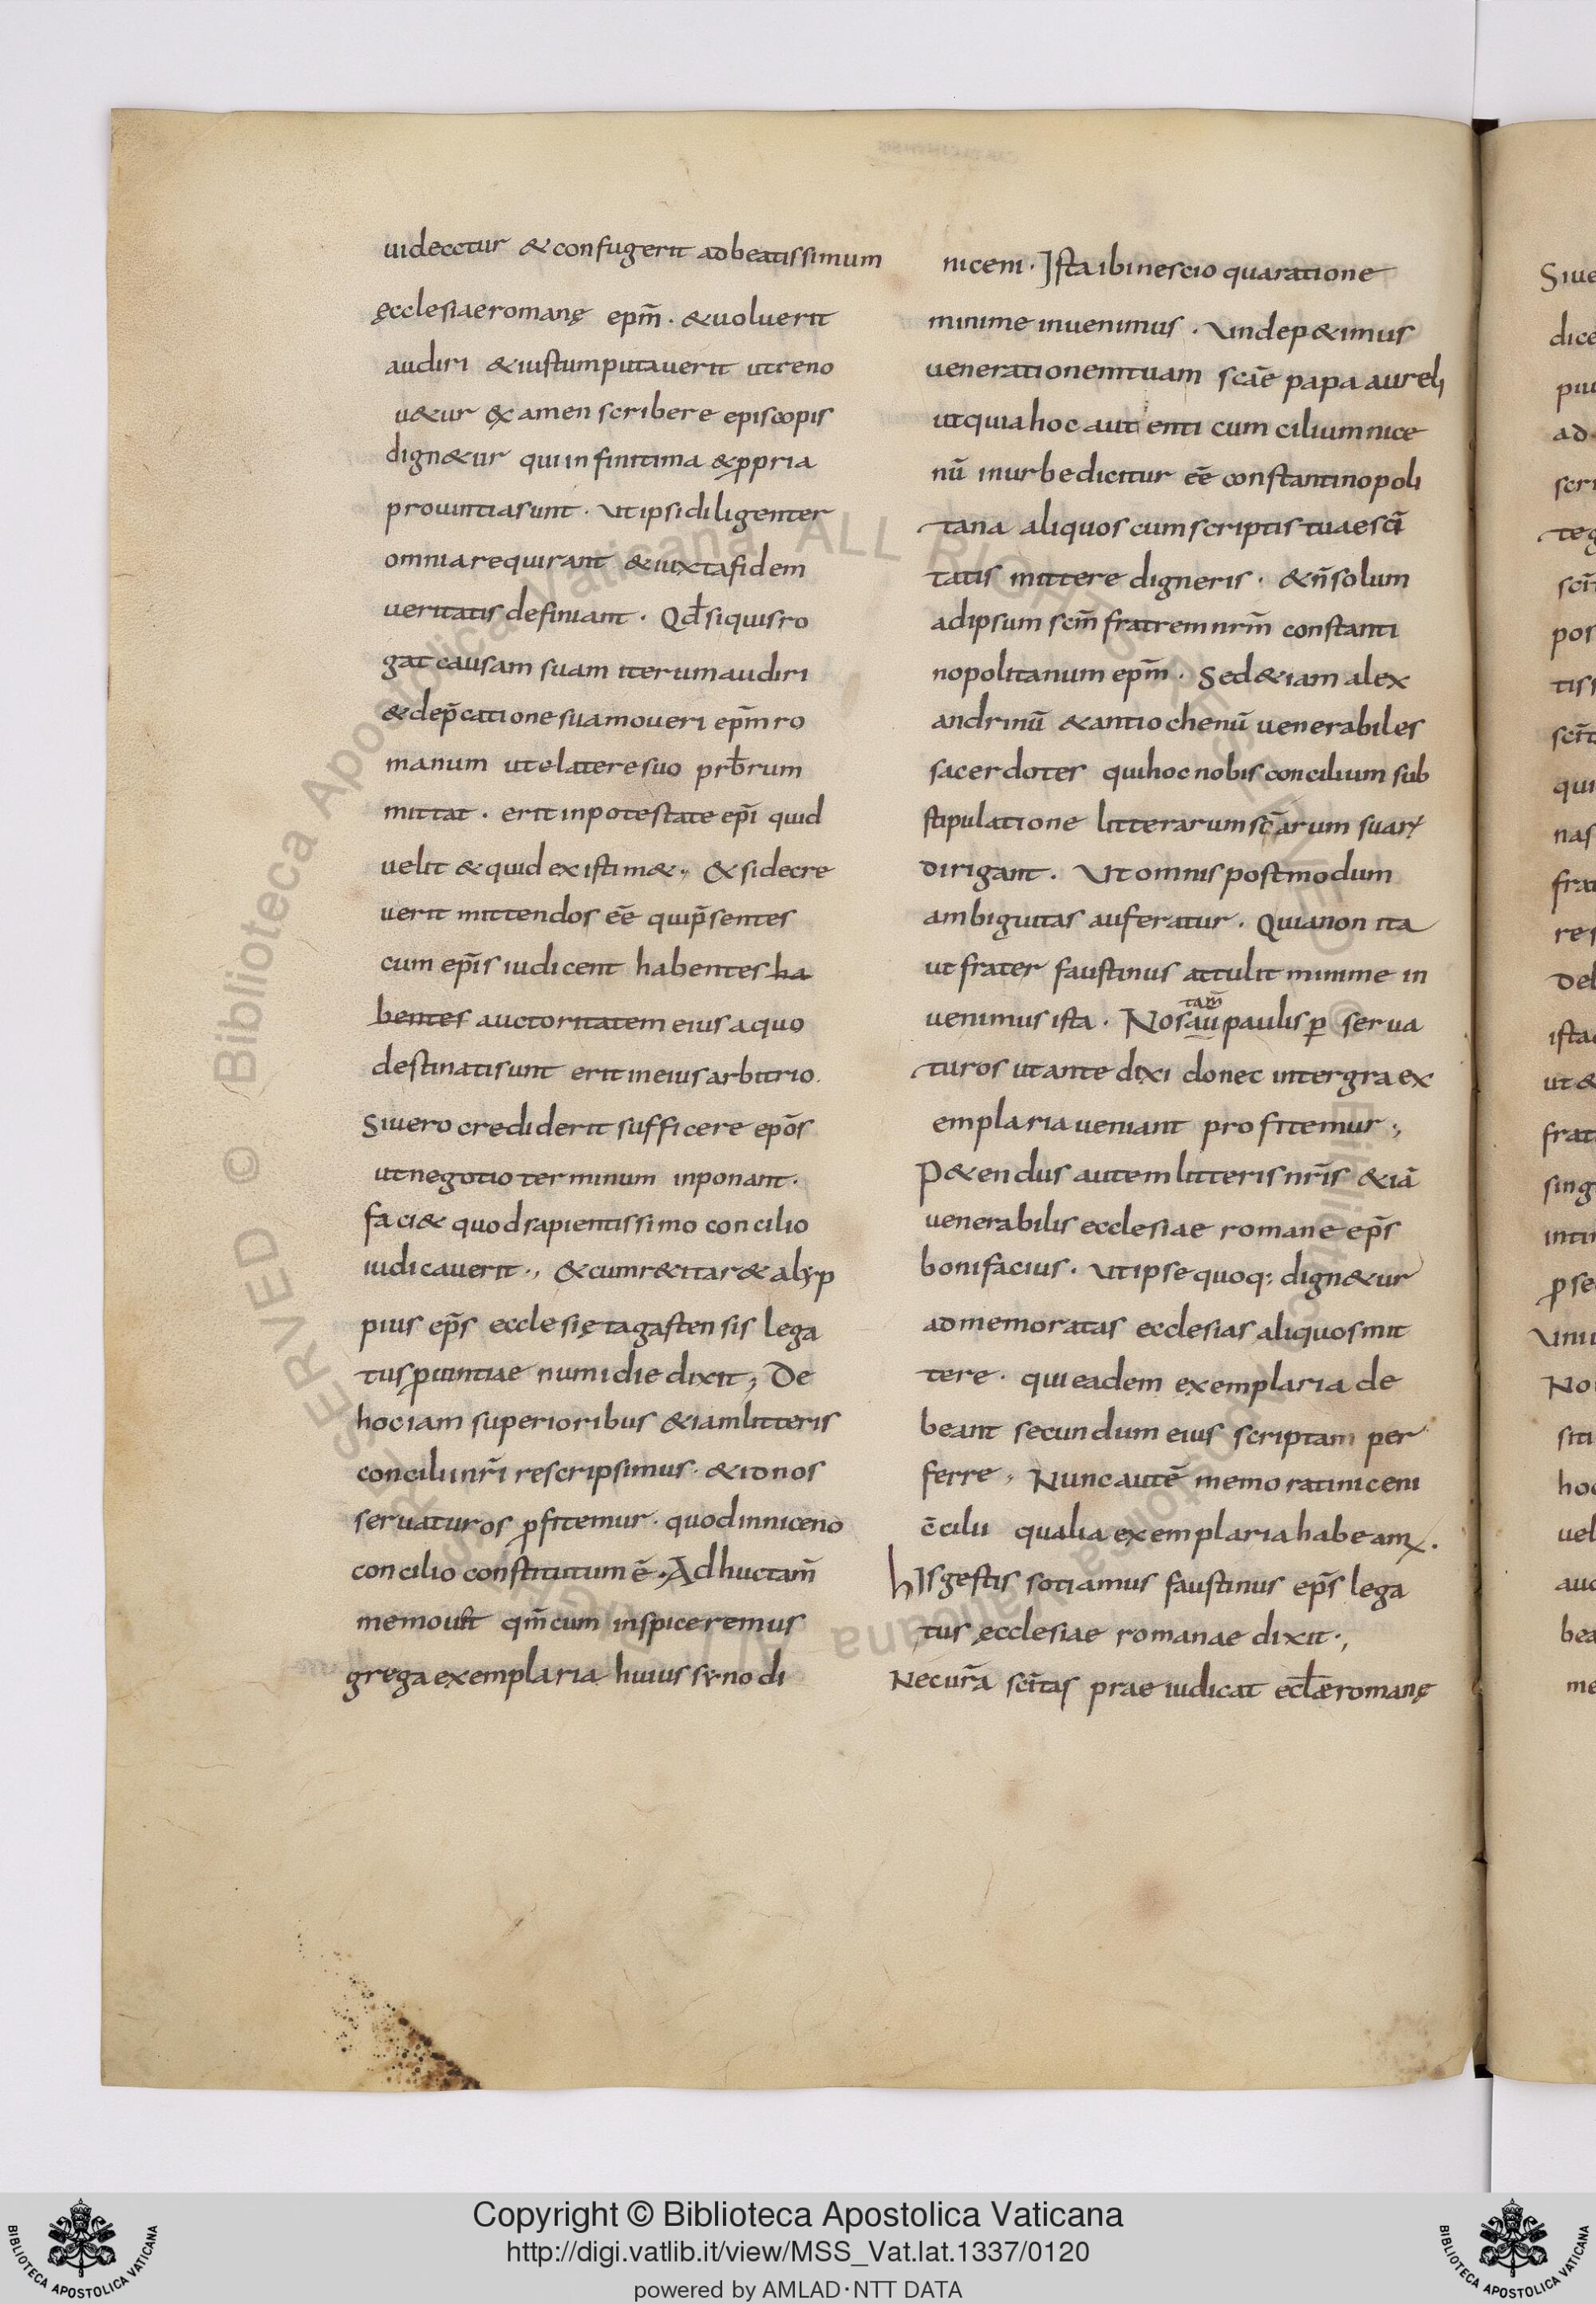 uidecctur & confugerit adbeatissimum
ęcclesiaeromanę ep̄m̄. &uoluerit
audiri &iustumputauerit utreno
u&ur ęxamen scribere episcopis
dign&ur quiinfinitima &ꝓpria
prouintiasunt. Utipsidiligenter
omniarequirant &iuxtafidem
ueritatis definiant. Qđsiquisro
gat causam suam iterumaudiri
&dep̄cationesuamoueri ep̄m̄ro
manum utelateresuo prb̄rum
mittat. eritinpotestate ep̄i quid
uelit &quidexistim&., &sidecre
uerit mittendos eē̄ quip̄sentes
cum ep̄is iudicent habentes ha
bentes auctoritatem eius aquo
destinatisunt eritineiusarbitrio.
Siuero crediderit sufficere ep̄os
utnegotio terminum inponant.
faci& quodsapientissimo concilio
iudicauerit., &cumr&itar& alyp
pius ep̄s ecclesię tagastensis lega
tusꝓuintiae numidie dixit; De
hociam superioribus &iamlitteris
conciliinr̄i rescripsimus. &idnos
seruaturos ꝓfitemur. quodinniceno
concilio constitutum ē. Adhuctam̄
memouet qm̄cum inspiceremus
gregaexemplaria huius synodi
niceni. Istaibinescio quaratione
minime inuenimus. Undep&imus
uenerationemtuam scāe papa aureli
utquiahoc autenti cum ciliumnice
nū inurbedicitur eē̄ constantinopoli
tana aliquos cumscriptis tuaesc̄i
tatis mittere digneris. &n̄solum
adipsum scm̄ fratremnrm̄ constanti
nopolitanum ep̄m̄. Sed&iam alex
andrinū &antiochenū uenerabiles
sacerdoter quihocnobis concilium sub
stipulatione litterarumsc̄arum suarꝝ
dirigant. Utomnis postmodum
ambiguitas auferatur. Quianon ita
ut frater faustinus attulit minime in
tam̄
uenimus ista. Nosaūpaulisꝑ serua
turos utante dixi donec intergraex
emplariaueniant profitemur.,
P&endus autemlitterisnr̄is &iā
uenerabilis ecclesiae romane ep̄s
bonifacius. Utipsequoq: dign&ur
admemoratas ecclesias aliquosmit
tere. quieadem exemplaria de
beant secundum eius scriptam per
ferre, Nuncautē memoratiniceni
c̄cilii qualia exemplariahabeamꝰ.
hIsgestis sotiamus faustinus ep̄s lega
tus ęcclesiae romanae dixit.,
Necur̄a sc̄itas prae iudicat ecl̄aeromanę
Copyright © Biblioteca Apostolica Vaticana
http://digi.vatlib.it/view/MSS_Vat.lat.1337/0120
powered by AMLAD·NTT DATA